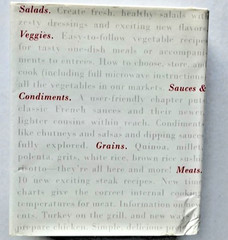 Salads. Create fresh, healthy salads with
zesty dressings and exciting new flavors.
Veggies. Easy-to-follow vegetable recipes
for tasty one-dish meals or accompani-
ments to entrees. How to choose, store, and
cook (including full microwave instructions)
all the vegetables in our markets. Sauces &
Condiments. A user-friendly chapter puts
classic French sauces and their newer,
lighter cousins within reach. Condiments
like chutneys and salsas and dipping sauces
fully explored. Grains. Quinoa, millet,
polenta, grits, white rice, brown rice sushi,
risotto—they're all here and more! Meats.
10 new exciting steak recipes. New time
charts give the correct internal cooking
temperatures for meat. Information on
cuts. Turkey on the grill, and new ways to
prepare chicken. Simple, delicious